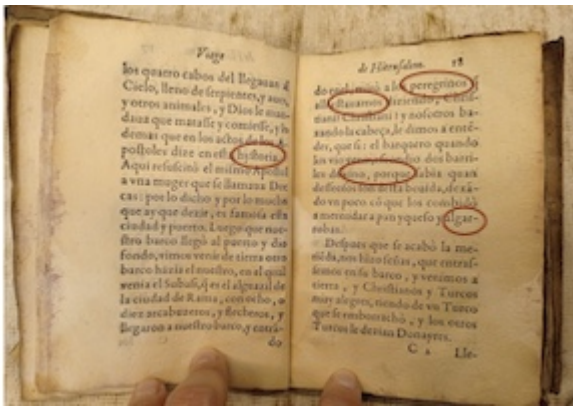 Viage
los quatro cabos del llegauan al
Cielo, lleno de serpientes, y aues,
y otros animales, y Dios le man-
daua que matasse y comiesse, y lo
demas que en los actos de los A-
postoles dize en esta hystoria.
Aqui resuscitò el mismo Apostol
a vna muger que se llamaua Dor
cas: por lo dicho y por lo mucho
que ay que dezir, es famosa esta
ciudad y puerto. Luego que nue-
stro barco llegò al puerto y dio
fondo, vimos venir de tierra otro
barco hazia el nuestro, en al qual
venia el Subasi, q̃ es el alguazil de
la ciudad de Rama, con ocho, o
diez arcabuzeros, y flecheros, y
llegaron a nuestro barco, y entrã-
do
de Hierusalem.
do en el, mirò a los peregrinos q̃
alli estauamos diziendo, Christ-
tiani Christiani? y nosotros ba-
xando la cabeça, le dimos a entẽ-
der, que si: el barquero quando
los vio dos barri-
les de vino, porque sabia quan
desseosos son desta beuida, dexã-
do vn poco cõ que los combidò
a merendar a pan y queso y algar-
robas.
Despues que se acabò la me-
rida, nos hizo señas, que entras-
semos en su barco, y venimos a
tierra, y Christianos y Turcos
muy alegres, tiendo de vn Turco
que se emborrachò, y los otros
Turcos le dezian Donayres.
Lle-